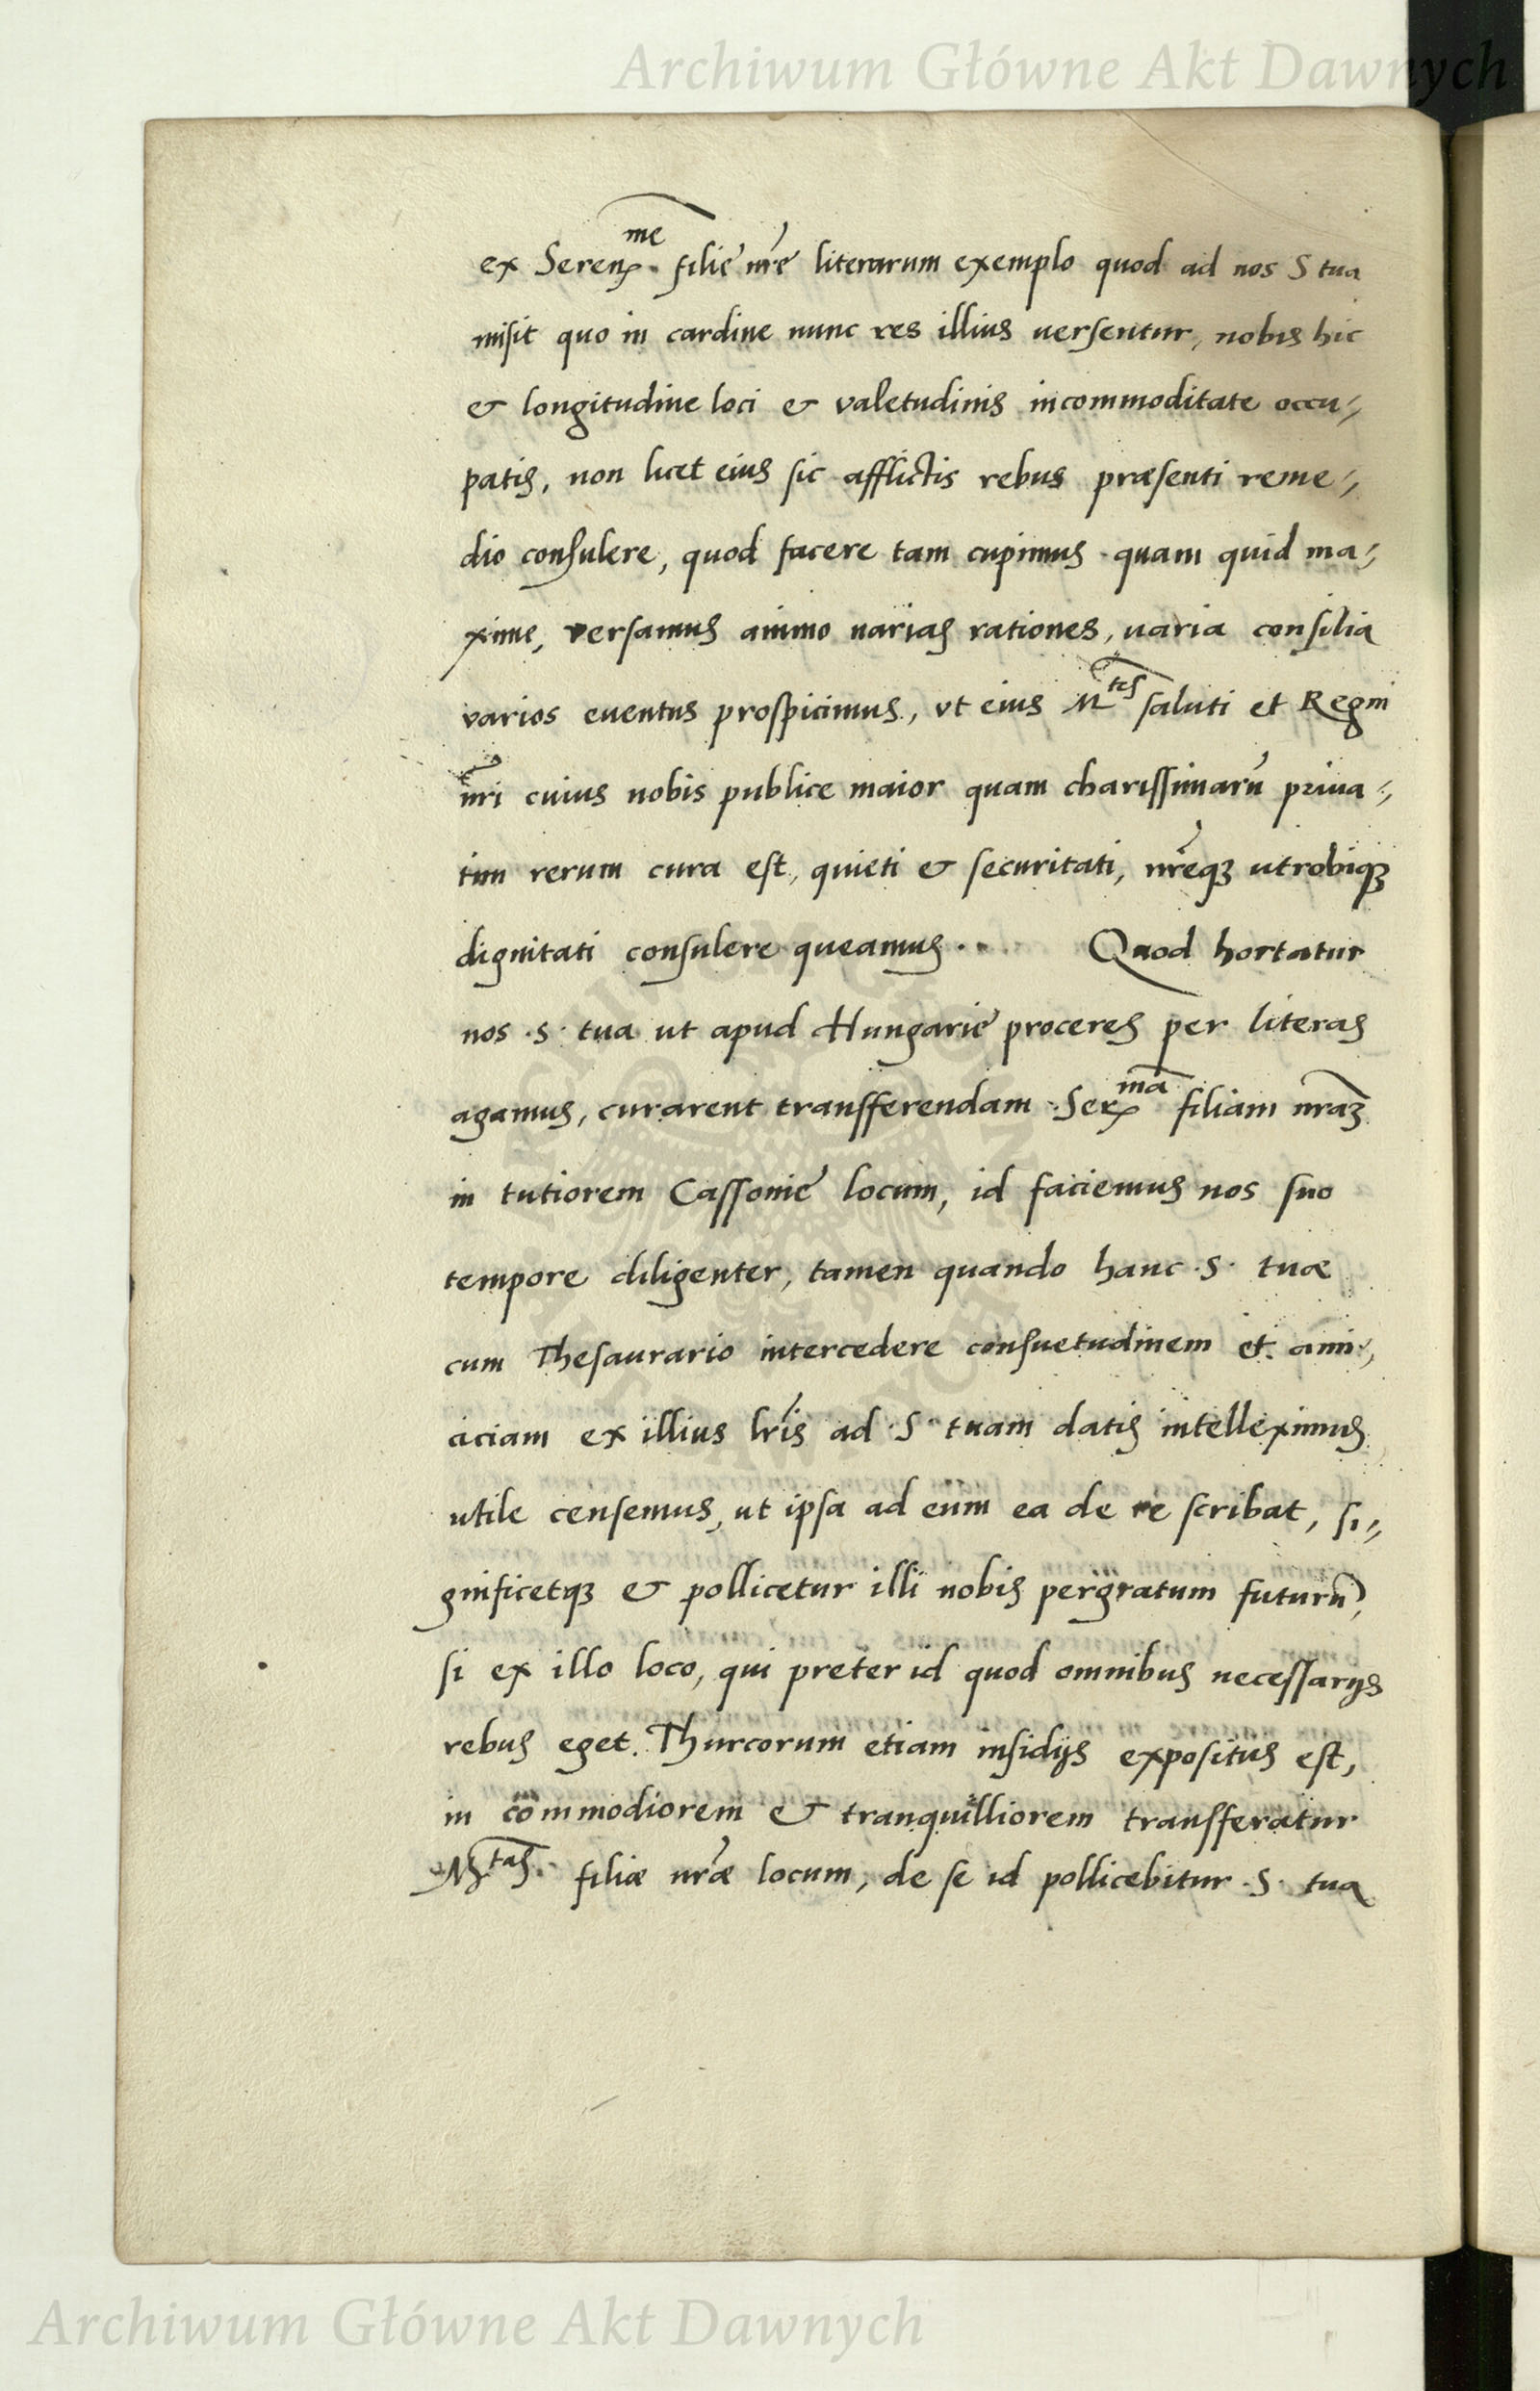 Archiwum Główne Akt Dawnych
ex Seren. me filię nr̃e literarum exemplo quod ad nos S tua
misit quo in cardine nunc res illius uersentur, nobis hic
& longitudine loci & valetudinis incommoditate occu-
patis, non licet eius sic afflictis rebus præsenti reme-
dio consulere, quod facere tam cupimus quam quid ma-
xime, versamus animo uarias rationes, uaria consilia
varios euentus prospicimus, vt eius M tes saluti et Regni
nr̃i cuius nobis publice maior quam charissimarũ priua-
tim rerum cura est, quieti & securitati, nr̃eqꝫ utrobiqꝫ
dignitati consulere queamus. Quod hortatur
nos .S. tua ut apud Hungarię proceres per literas
agamus, curarent transferendam Ser. ma filiam nr̃aꝫ
in tutiorem Cassonię locum, id faciemus nos suo
tempore diligenter, tamen quando hanc .S. tuæ
cum Thesaurario intercedere consuetudinem et ami-
ciciam ex illius lr̃is ad .S. tuam datis intelleximus
utile censemus, ut ipsa ad eum ea de re scribat, si-
gnificetqꝫ & pollicetur illi nobis pergratum futurũ,
si ex illo loco, qui preter id quod omnibus necessarijs
rebus eget. Thurcorum etiam insidijs expositus est,
in commodiorem & tranquilliorem transferatur
M tas. filiæ nr̃æ locum, de se id pollicebitur .S. tua
Archiwum Główne Akt Dawnych